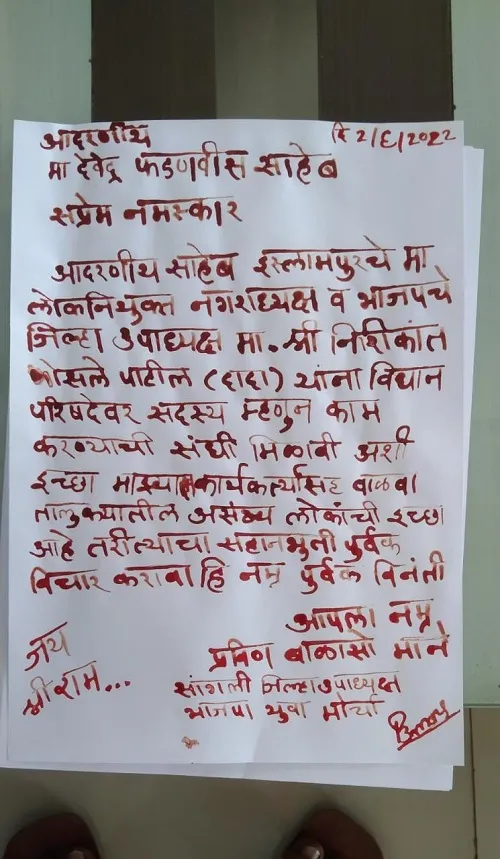 आदरणीय
दि 2/6/2022
मा देवेंद्र फडणवीस साहेब
सप्रेम नमस्कार
आदरणीय साहेब इस्लामपुरचे मा
लोकनियुक्त नगराध्यक्ष व भाजपचे
जिल्हा उपाध्यक्ष मा. श्री निशिकांत
भोसले पाटील (दादा) यांना विधान
परिषदेवर सदस्य म्हणुन काम
करण्याची संधी मिळावी अशी
इच्छा माझ्या कार्यकर्त्यासह वाळवा
तालुक्यातील असंख्य लोकांची इच्छा
आहे तरी त्याचा सहानभुती पुर्वक
विचार करावा हि नम्र पुर्वक विनंती
आपला नम्र
प्रविण बाळासो माने
सांगली जिल्हा उपाध्यक्ष
भाजपा युवा मोर्चा
जय
श्रीराम...